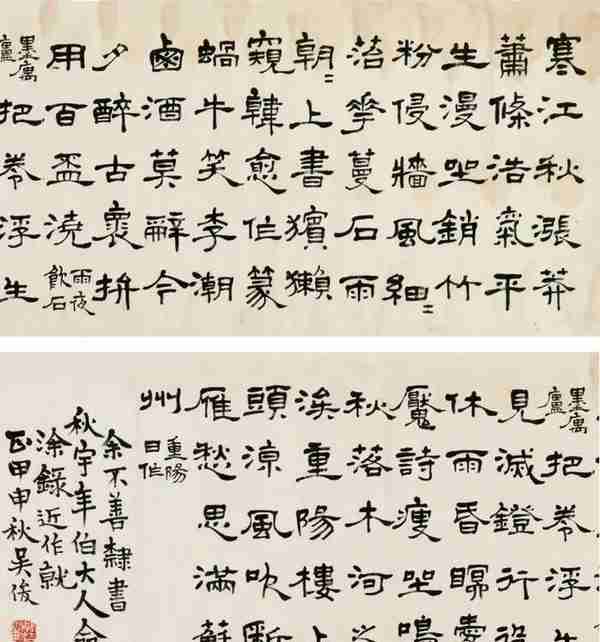 寒江秋漲莽
蕭條浩氣平
生漫坐銷竹
粉侵牆風細〻
菭花蔓石雨
朝〻上書獱獺
窺韓愈作篆
蝸牛笑李潮
鹵酒莫辭今
夕醉古拚
用百盃澆
雨夜
飲石
寓
廬
把卷浮生
寓
廬
把卷浮生
見滅鐙行役
休雨昏
魘詩瘦坐鳴
秋落木河之
涘重陽樓上
頭涼風吹斷
雁愁思滿蘇
州
重陽
日作
余不善隸書
秋宇年伯大人命
塗錄近作就
正甲申秋吳俊